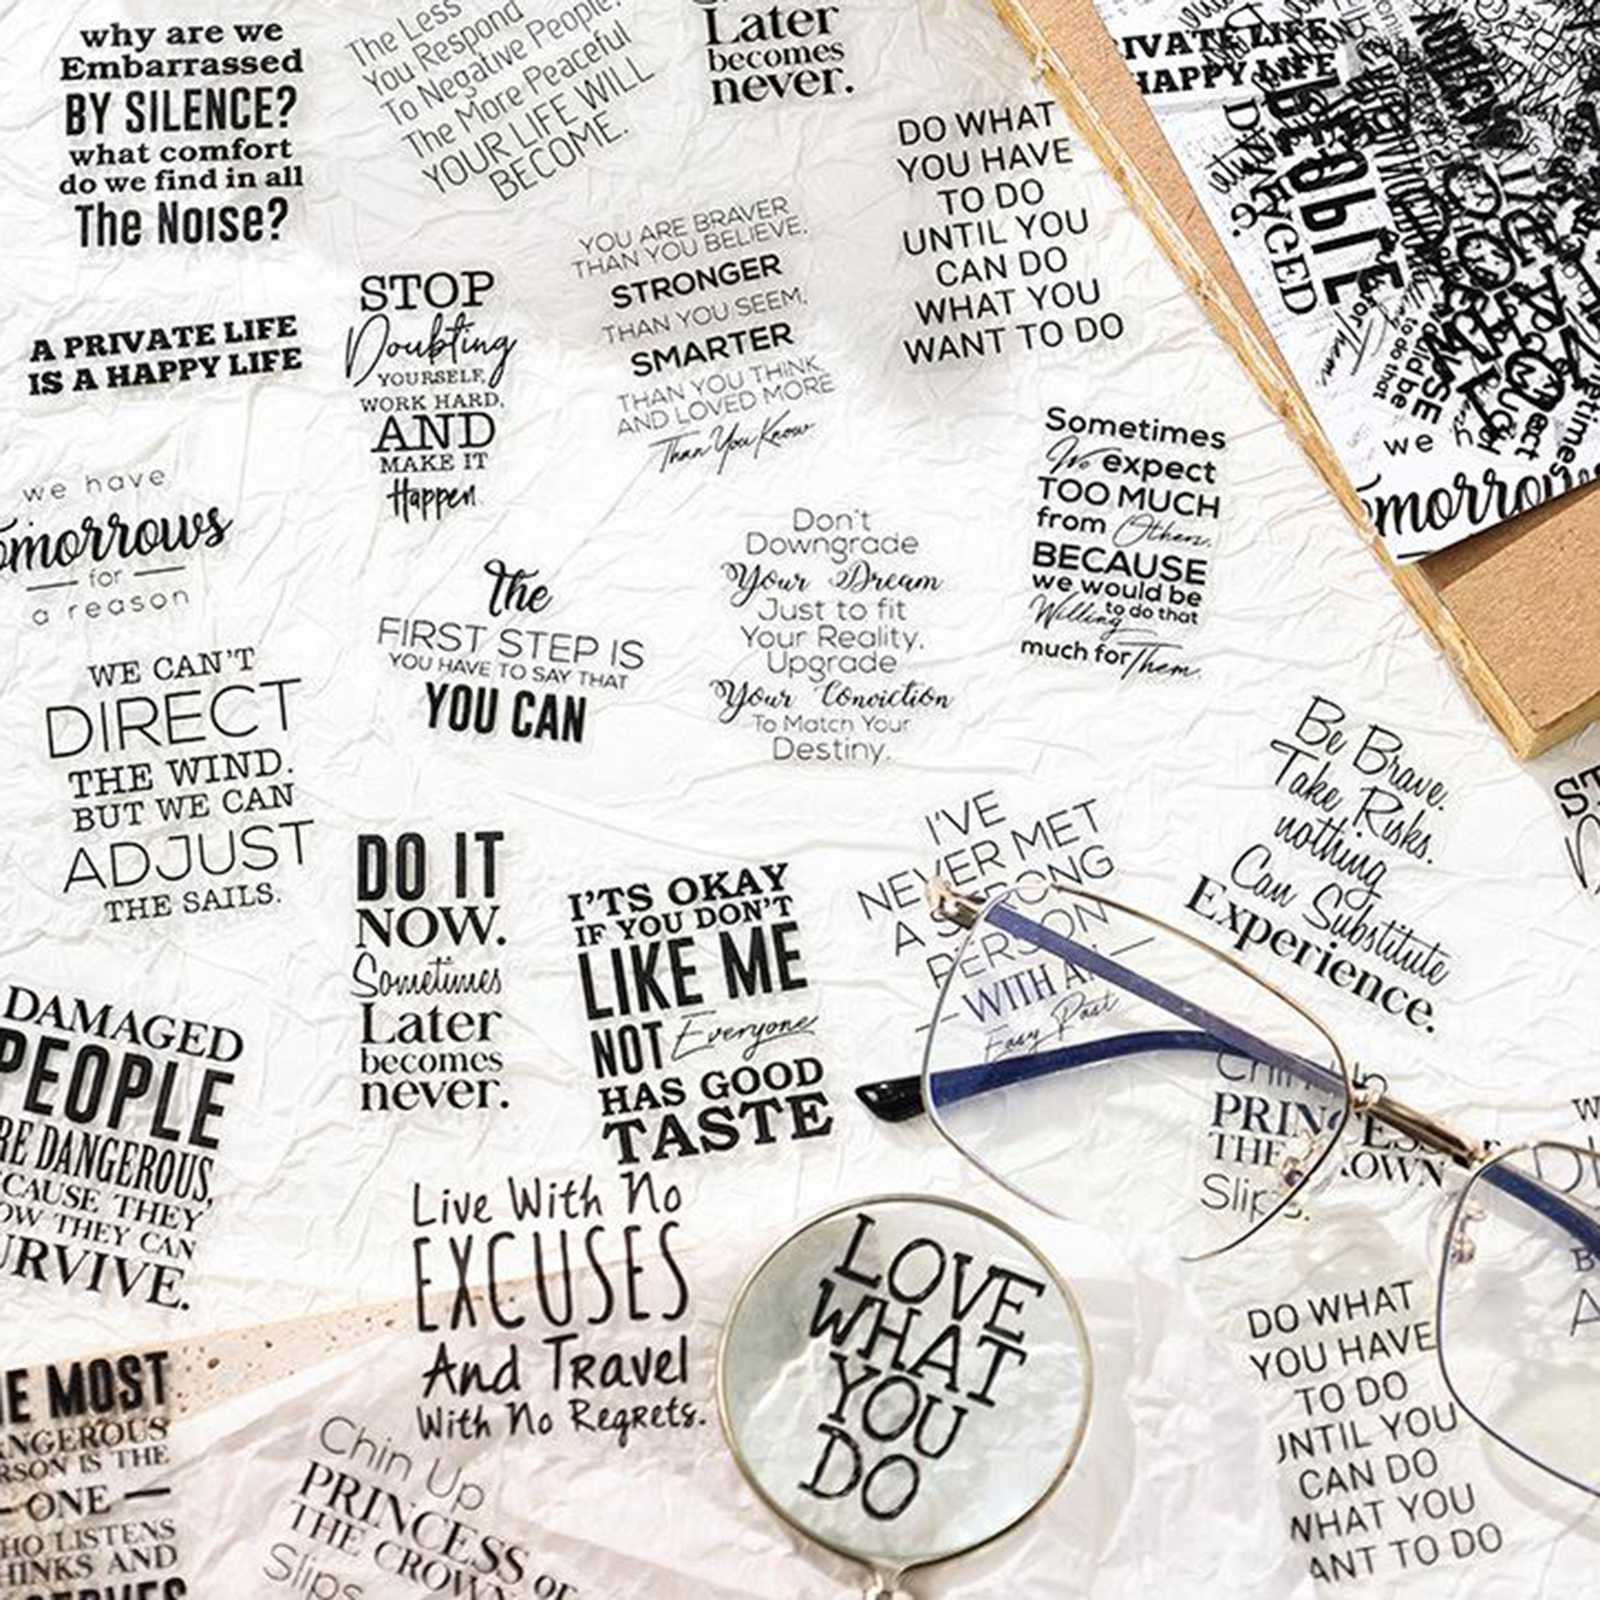 why are we
Embarrassed
BY SILENCE?
what comfort
do we find in all
The Noise?
The Less
You Respond
To Negative People.
The More Peaceful
YOUR LIFE WILL
BECOME.
Later
becomes
never.
DO WHAT
YOU HAVE
TO DO
UNTIL YOU
CAN DO
WHAT YOU
WANT TO DO
A PRIVATE LIFE
IS A HAPPY LIFE
STOP
Doubting
YOURSELF,
WORK HARD,
AND
MAKE IT
Happen
YOU ARE BRAVER
THAN YOU BELIEVE,
STRONGER
THAN YOU SEEM,
SMARTER
THAN YOU THINK
AND LOVED MORE
Than You Know
Sometimes
We expect
TOO MUCH
from Others,
BECAUSE
we would be
Willing to do that
much for Them
we have
omorrows
for
a reason
the
FIRST STEP IS
YOU HAVE TO SAY THAT
YOU CAN
Don't
Downgrade
Your Dream
Just to fit
Your Reality.
Upgrade
Your Conviction
To Match Your
Destiny.
WE CAN'T
DIRECT
THE WIND.
BUT WE CAN
ADJUST
THE SAILS.
DO IT
NOW.
Sometimes
Later
becomes
never.
I'TS OKAY
IF YOU DON'T
LIKE ME
NOT Everyone
HAS GOOD
TASTE
I'VE
NEVER MET
A STRONG
PERSON
WITH AN
Easy Past
Be Brave.
Take Risks.
nothing
Can Substitute
Experience.
DAMAGED
PEOPLE
RE DANGEROUS,
CAUSE THEY
OW THEY CAN
URVIVE.
Live With No
EXCUSES
And Travel
With No Regrets.
LOVE
WHAT
YOU
DO
Chin Up
PRINCESS
THE CROWN
Slips.
DO WHAT
YOU HAVE
TO DO
UNTIL YOU
CAN DO
WHAT YOU
ANT TO DO
E MOST
NGEROUS
RSON IS THE
ONE
HO LISTENS
HINKS AND
Chin Up
PRINCESS or
THE CROWN
Slips
IVATE LIFE
HAPPY LIFE
omorrow